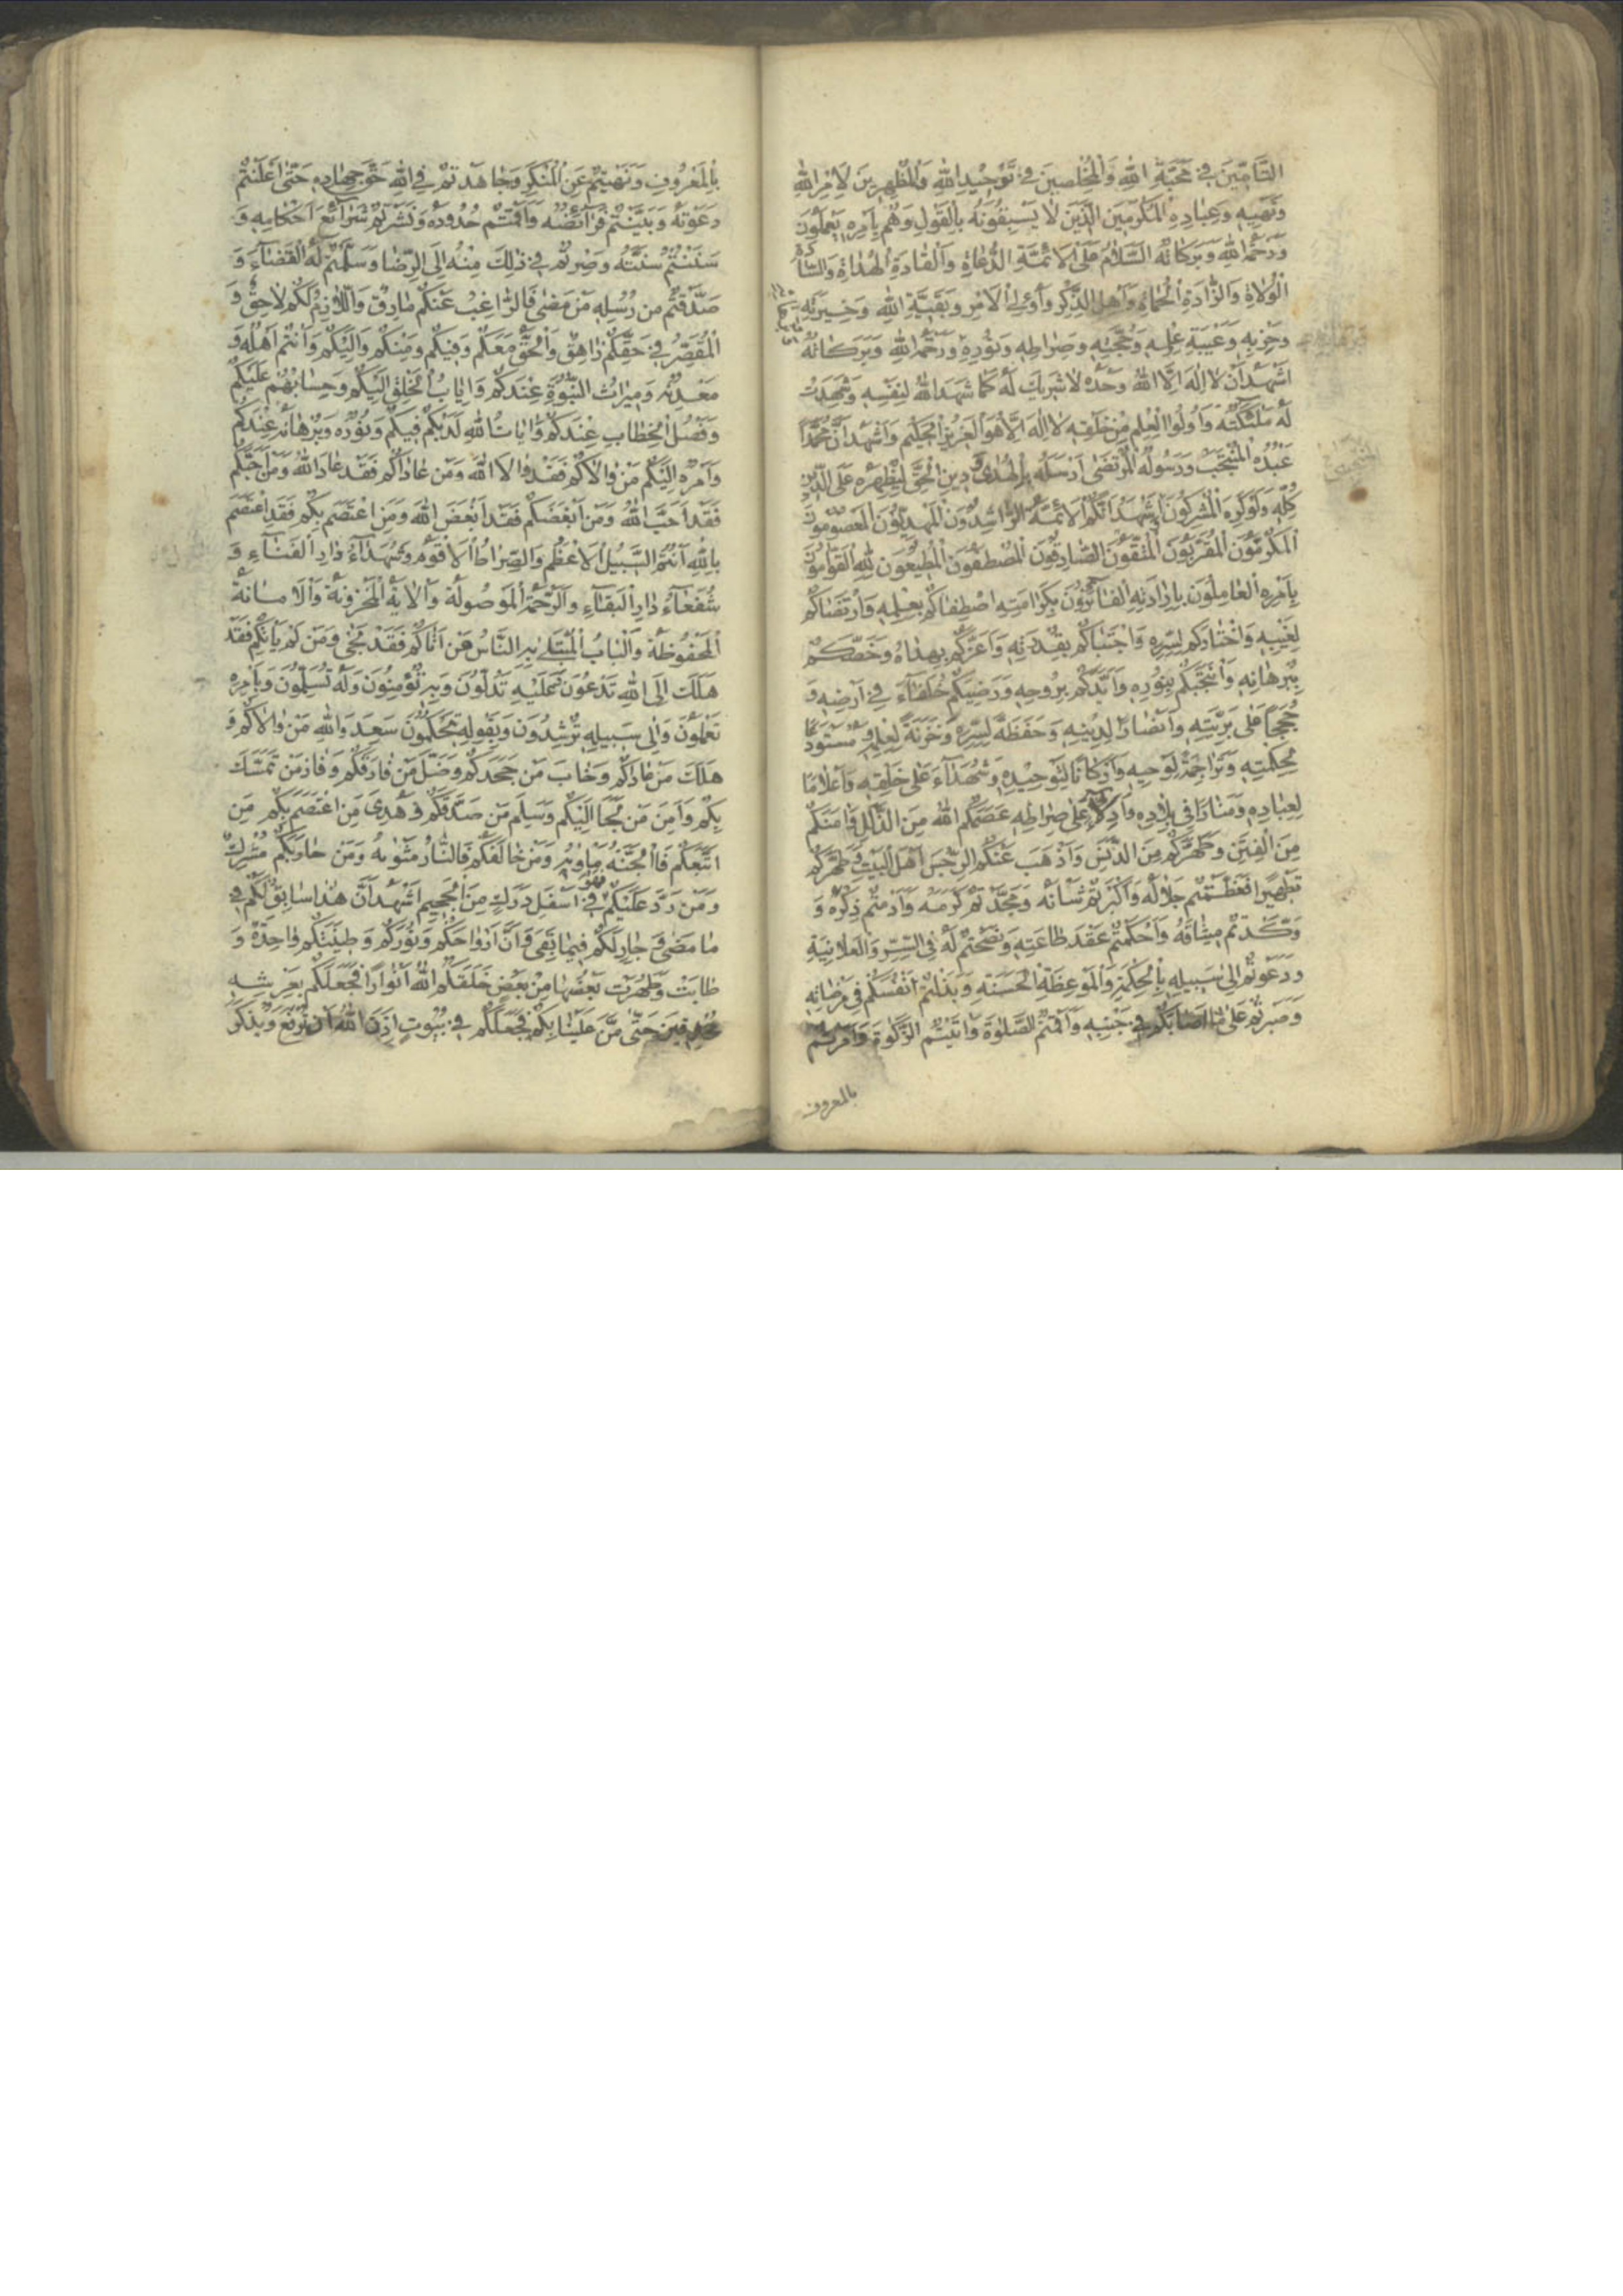 التَّامِّينَ فِي مَحَبَّةِ اللهِ وَالْمُخْلِصِينَ فِي تَوْحِيدِ اللهِ وَالْمُظْهِرِينَ لِأَمْرِ اللهِ
وَنَهْيِهِ وَعِبَادِهِ الْمُكْرَمِينَ الَّذِينَ لَا يَسْبِقُونَهُ بِالْقَوْلِ وَهُمْ بِأَمْرِهِ يَعْمَلُونَ
وَرَحْمَةُ اللهِ وَبَرَكَاتُهُ السَّلَامُ عَلَى الْأَئِمَّةِ الدُّعَاةِ وَالْقَادَةِ الْهُدَاةِ وَالسَّادَةِ
الْوُلَاةِ وَالذَّادَةِ الْحُمَاةِ وَأَهْلِ الذِّكْرِ وَأُولِي الْأَمْرِ وَبَقِيَّةِ اللهِ وَخِيَرَتِهِ
وَحِزْبِهِ وَعَيْبَةِ عِلْمِهِ وَحُجَّتِهِ وَصِرَاطِهِ وَنُورِهِ وَرَحْمَةُ اللهِ وَبَرَكَاتُهُ
اَشْهَدُ أَنْ لَا إِلَهَ إِلَّا اللهُ وَحْدَهُ لَا شَرِيكَ لَهُ كَمَا شَهِدَ اللهُ لِنَفْسِهِ وَشَهِدَتْ
لَهُ مَلٰئِكَتُهُ وَأُولُوا الْعِلْمِ مِنْ خَلْقِهِ لَا إِلَهَ إِلَّا هُوَ الْعَزِيزُ الْحَكِيمُ وَأَشْهَدُ أَنَّ مُحَمَّدًا
عَبْدُهُ الْمُنْتَجَبُ وَرَسُولُهُ الْمُرْتَضَى أَرْسَلَهُ بِالْهُدَى وَدِينِ الْحَقِّ لِيُظْهِرَهُ عَلَى الدِّينِ
كُلِّهِ وَلَوْ كَرِهَ الْمُشْرِكُونَ وَأَشْهَدُ أَنَّكُمُ الْأَئِمَّةُ الرَّاشِدُونَ الْمَهْدِيُّونَ الْمَعْصُومُونَ
الْمُكَرَّمُونَ الْمُقَرَّبُونَ الْمُتَّقُونَ الصَّادِقُونَ الْمُصْطَفَوْنَ الْمُطِيعُونَ لِلّٰهِ الْقَوَّامُونَ
بِأَمْرِهِ الْعَامِلُونَ بِإِرَادَتِهِ الْفَائِزُونَ بِكَرَامَتِهِ اصْطَفَاكُمْ بِعِلْمِهِ وَارْتَضَاكُمْ
لِغَيْبِهِ وَاخْتَارَكُمْ لِسِرِّهِ وَاجْتَبَاكُمْ بِقُدْرَتِهِ وَأَعَزَّكُمْ بِهُدَاهُ وَخَصَّكُمْ
بِبُرْهَانِهِ وَانْتَجَبَكُمْ بِنُورِهِ وَأَيَّدَكُمْ بِرُوحِهِ وَرَضِيَكُمْ خُلَفَاءَ فِي أَرْضِهِ وَ
حُجَجًا عَلَى بَرِيَّتِهِ وَأَنْصَارًا لِدِينِهِ وَحَفَظَةً لِسِرِّهِ وَخَزَنَةً لِعِلْمِهِ وَمُسْتَوْدَعًا
لِحِكْمَتِهِ وَتَرَاجِمَةً لِوَحْيِهِ وَأَرْكَانًا لِتَوْحِيدِهِ وَشُهَدَاءَ عَلَى خَلْقِهِ وَأَعْلَامًا
لِعِبَادِهِ وَمَنَارًا فِي بِلَادِهِ وَأَدِلَّاءَ عَلَى صِرَاطِهِ عَصَمَكُمُ اللهُ مِنَ الزَّلَلِ وَآمَنَكُمْ
مِنَ الْفِتَنِ وَطَهَّرَكُمْ مِنَ الدَّنَسِ وَأَذْهَبَ عَنْكُمُ الرِّجْسَ أَهْلَ الْبَيْتِ وَطَهَّرَكُمْ
تَطْهِيرًا فَعَظَّمْتُمْ جَلَالَهُ وَأَكْبَرْتُمْ شَأْنَهُ وَمَجَّدْتُمْ كَرَمَهُ وَأَدَمْتُمْ ذِكْرَهُ وَ
وَكَّدْتُمْ مِيثَاقَهُ وَأَحْكَمْتُمْ عَقْدَ طَاعَتِهِ وَنَصَحْتُمْ لَهُ فِي السِّرِّ وَالْعَلَانِيَةِ
وَدَعَوْتُمْ إِلَى سَبِيلِهِ بِالْحِكْمَةِ وَالْمَوْعِظَةِ الْحَسَنَةِ وَبَذَلْتُمْ أَنْفُسَكُمْ فِي مَرْضَاتِهِ
وَصَبَرْتُمْ عَلَى مَا أَصَابَكُمْ فِي جَنْبِهِ وَأَقَمْتُمُ الصَّلٰوةَ وَآتَيْتُمُ الزَّكٰوةَ وَأَمَرْتُمْ
بالمعروف
بِالْمَعْرُوفِ وَنَهَيْتُمْ عَنِ الْمُنْكَرِ وَجَاهَدْتُمْ فِي اللهِ حَقَّ جِهَادِهِ حَتَّى أَعْلَنْتُمْ
دَعْوَتَهُ وَبَيَّنْتُمْ فَرَائِضَهُ وَأَقَمْتُمْ حُدُودَهُ وَنَشَرْتُمْ شَرَائِعَ أَحْكَامِهِ وَ
سَنَنْتُمْ سُنَّتَهُ وَصِرْتُمْ فِي ذٰلِكَ مِنْهُ إِلَى الرِّضَا وَسَلَّمْتُمْ لَهُ الْقَضَاءَ وَ
صَدَّقْتُمْ مِنْ رُسُلِهِ مَنْ مَضَى فَالرَّاغِبُ عَنْكُمْ مَارِقٌ وَاللَّازِمُ لَكُمْ لَاحِقٌ وَ
الْمُقَصِّرُ فِي حَقِّكُمْ زَاهِقٌ وَالْحَقُّ مَعَكُمْ وَفِيكُمْ وَمِنْكُمْ وَإِلَيْكُمْ وَأَنْتُمْ أَهْلُهُ وَ
مَعْدِنُهُ وَمِيرَاثُ النُّبُوَّةِ عِنْدَكُمْ وَإِيَابُ الْخَلْقِ إِلَيْكُمْ وَحِسَابُهُمْ عَلَيْكُمْ
وَفَصْلُ الْخِطَابِ عِنْدَكُمْ وَآيَاتُ اللهِ لَدَيْكُمْ فِيكُمْ وَنُورُهُ وَبُرْهَانُهُ عِنْدَكُمْ
وَأَمْرُهُ إِلَيْكُمْ مَنْ وَالَاكُمْ فَقَدْ وَالَا اللهَ وَمَنْ عَادَاكُمْ فَقَدْ عَادَ اللهَ وَمَنْ أَحَبَّكُمْ
فَقَدْ أَحَبَّ اللهَ وَمَنْ أَبْغَضَكُمْ فَقَدْ أَبْغَضَ اللهَ وَمَنِ اعْتَصَمَ بِكُمْ فَقَدِ اعْتَصَمَ
بِاللهِ أَنْتُمُ السَّبِيلُ الْأَعْظَمُ وَالصِّرَاطُ الْأَقْوَمُ وَشُهَدَاءُ دَارِ الْفَنَاءِ وَ
شُفَعَاءُ دَارِ الْبَقَاءِ وَالرَّحْمَةُ الْمَوْصُولَةُ وَالْآيَةُ الْمَخْزُونَةُ وَالْأَمَانَةُ
الْمَحْفُوظَةُ وَالْبَابُ الْمُبْتَلَى بِهِ النَّاسُ مَنْ أَتَاكُمْ فَقَدْ نَجَى وَمَنْ لَمْ يَأْتِكُمْ فَقَدْ
هَلَكَ إِلَى اللهِ تَدْعُونَ وَعَلَيْهِ تَدُلُّونَ وَبِهِ تُؤْمِنُونَ وَلَهُ تُسَلِّمُونَ وَبِأَمْرِهِ
تَعْمَلُونَ وَإِلَى سَبِيلِهِ تُرْشِدُونَ وَبِقَوْلِهِ تَحْكُمُونَ سَعِدَ وَاللهِ مَنْ وَالَاكُمْ وَ
هَلَكَ مَنْ عَادَاكُمْ وَخَابَ مَنْ جَحَدَكُمْ وَضَلَّ مَنْ فَارَقَكُمْ وَفَازَ مَنْ تَمَسَّكَ
بِكُمْ وَأَمِنَ مَنْ لَجَأَ إِلَيْكُمْ وَسَلِمَ مَنْ صَدَّقَكُمْ وَهُدِيَ مَنِ اعْتَصَمَ بِكُمْ مَنِ
اتَّبَعَكُمْ فَالْجَنَّةُ مَأْوٰيهُ وَمَنْ خَالَفَكُمْ فَالنَّارُ مَثْوٰيهُ وَمَنْ حَارَبَكُمْ مُشْرِكٌ
وَمَنْ رَدَّ عَلَيْكُمْ فَهُوَ فِي أَسْفَلِ دَرَكٍ مِنَ الْجَحِيمِ أَشْهَدُ أَنَّ هٰذَا سَابِقٌ لَكُمْ فِي
مَا مَضَى وَجَارٍ لَكُمْ فِيمَا بَقِيَ وَأَنَّ أَرْوَاحَكُمْ وَنُورَكُمْ وَطِينَتَكُمْ وَاحِدَةٌ وَ
طَابَتْ وَطَهُرَتْ بَعْضُهَا مِنْ بَعْضٍ خَلَقَكُمُ اللهُ أَنْوَارًا فَجَعَلَكُمْ بِعَرْشِهِ
مُحْدِقِينَ حَتَّى مَنَّ عَلَيْنَا بِكُمْ فَجَعَلَكُمْ فِي بُيُوتٍ أَذِنَ اللهُ أَنْ تُرْفَعَ وَيُذْكَرَ